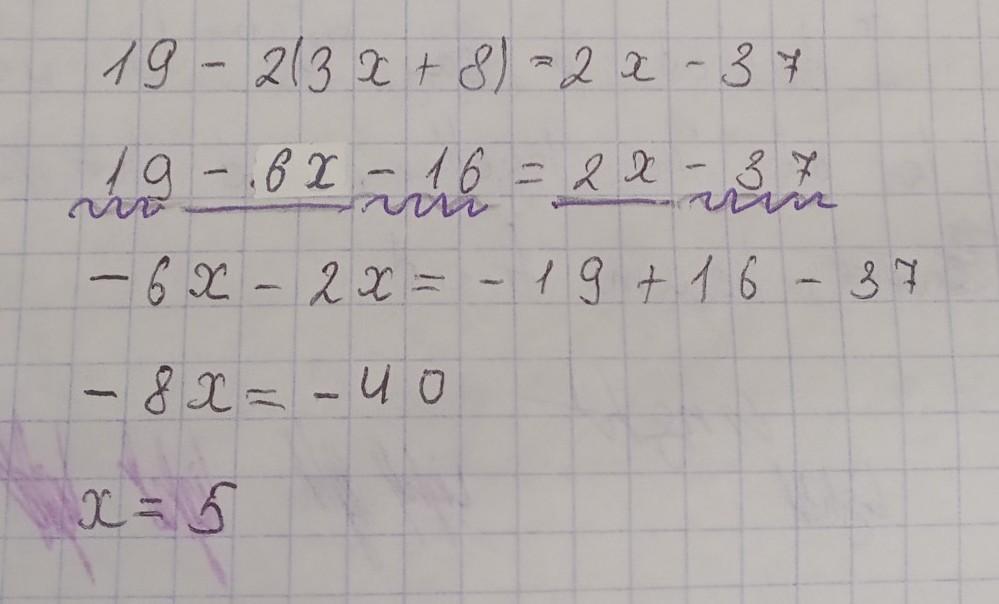 19 - 2(3x + 8) = 2x - 37
19 - .6x - 16 = 2x - 37
-6x - 2x = -19 + 16 - 37
-8x = -40
x = 5